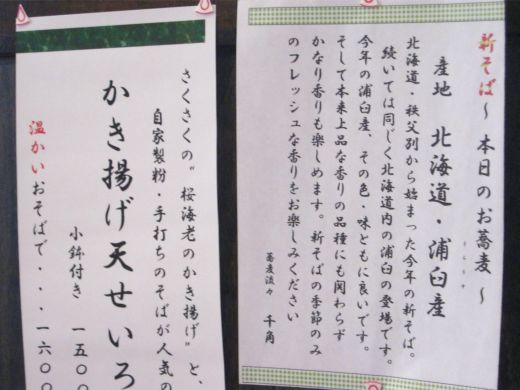 新そば～本日のお蕎麦～
産地　北海道・浦臼産
うらうす
北海道・秩父別から始まった今年の新そば。
続いては同じく北海道内の浦臼の登場です。
今年の浦臼産、その色・味ともに良いです。
そして本来上品な香りの品種にも関わらず
かなり香りも楽しめます。新そばの季節のみ
のフレッシュな香りをお楽しみください
蕎麦淡々　千角
さくさくの〝桜海老のかき揚げ〟と、
自家製粉・手打ちのそばが人気の
かき揚げ天せいろ
小鉢付き　一五〇〇
温かいおそばで・・・一六〇〇